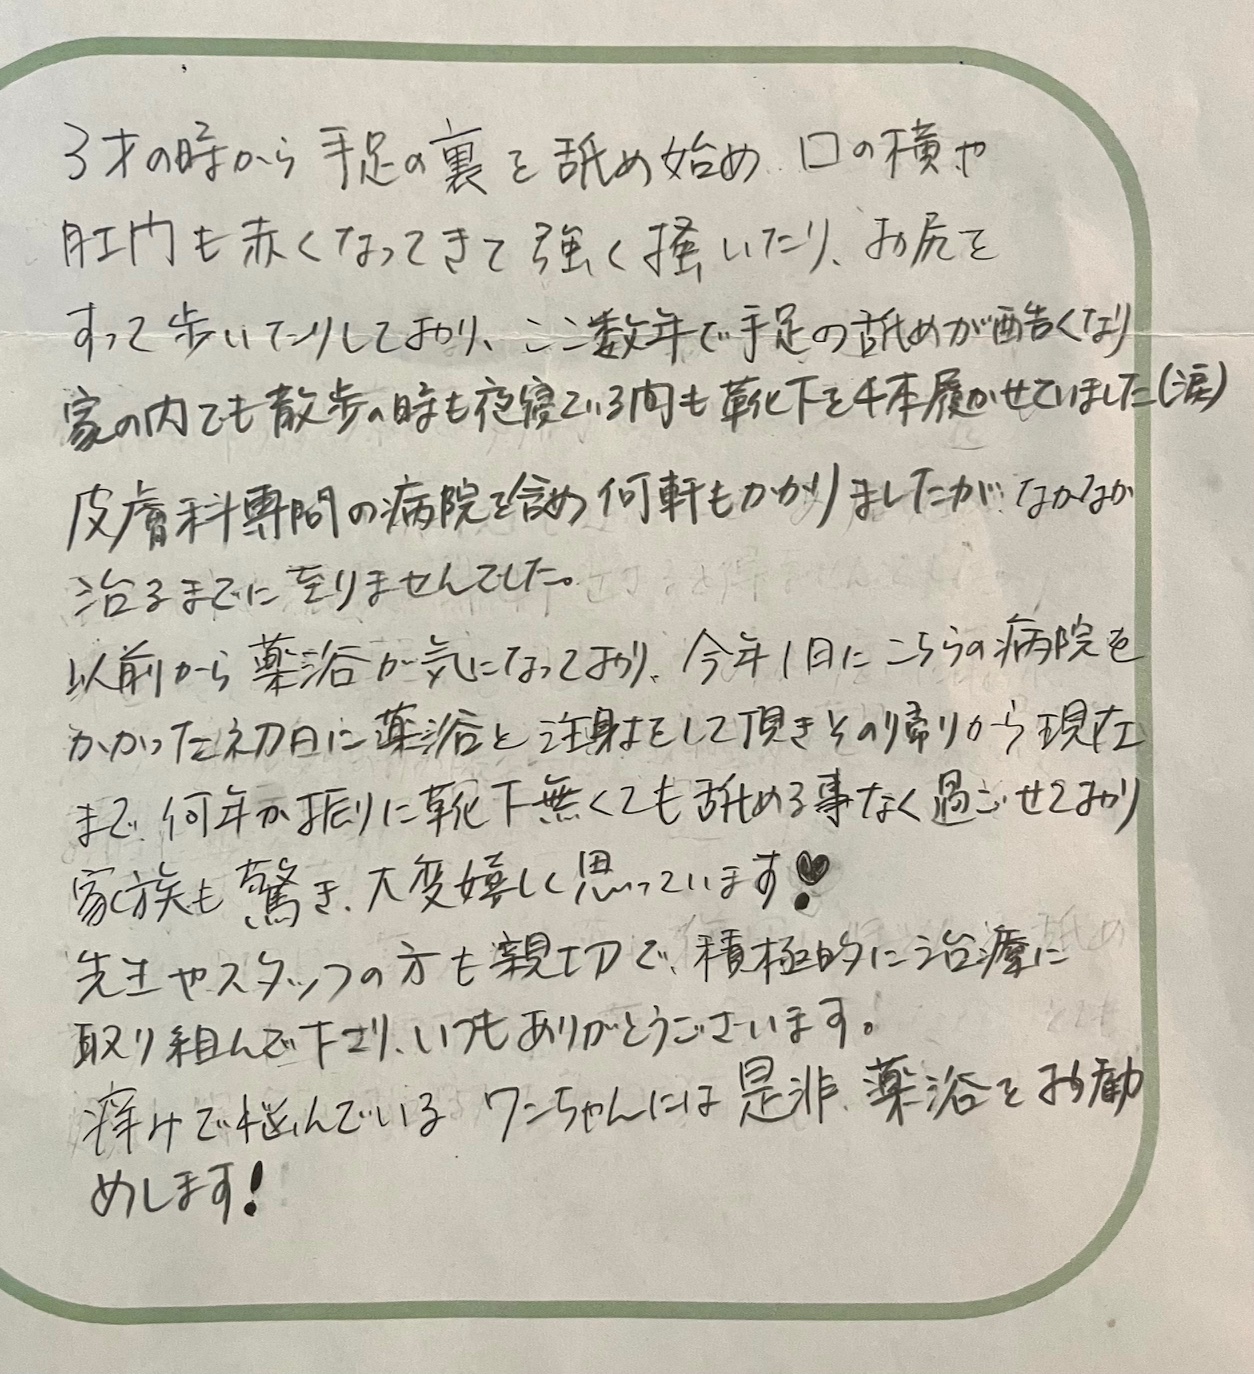 3才の時から手足の裏を舐め始め、口の横や
肛門も赤くなってきて強く掻いたり、お尻を
すって歩いてたりしており、ここ数年で手足の舐めが酷くなり
家の内でも散歩の時も夜寝ている間も靴下を4本履かせていました(涙)
皮膚科専門の病院を含め何軒もかかりましたが、なかなか
治るまでに至りませんでした。
以前から薬浴が気になっており、今年1月にこちらの病院を
かかった初日に薬浴と注射をして頂きその帰りから現在
まで、何年か振りに靴下無くても舐める事なく過ごせており
家族も驚き、大変嬉しく思っています♥
先生やスタッフの方も親切で、積極的に治療に
取り組んで下さり、いつもありがとうございます。
痒みで悩んでいるワンちゃんには是非、薬浴をお勧
めします!